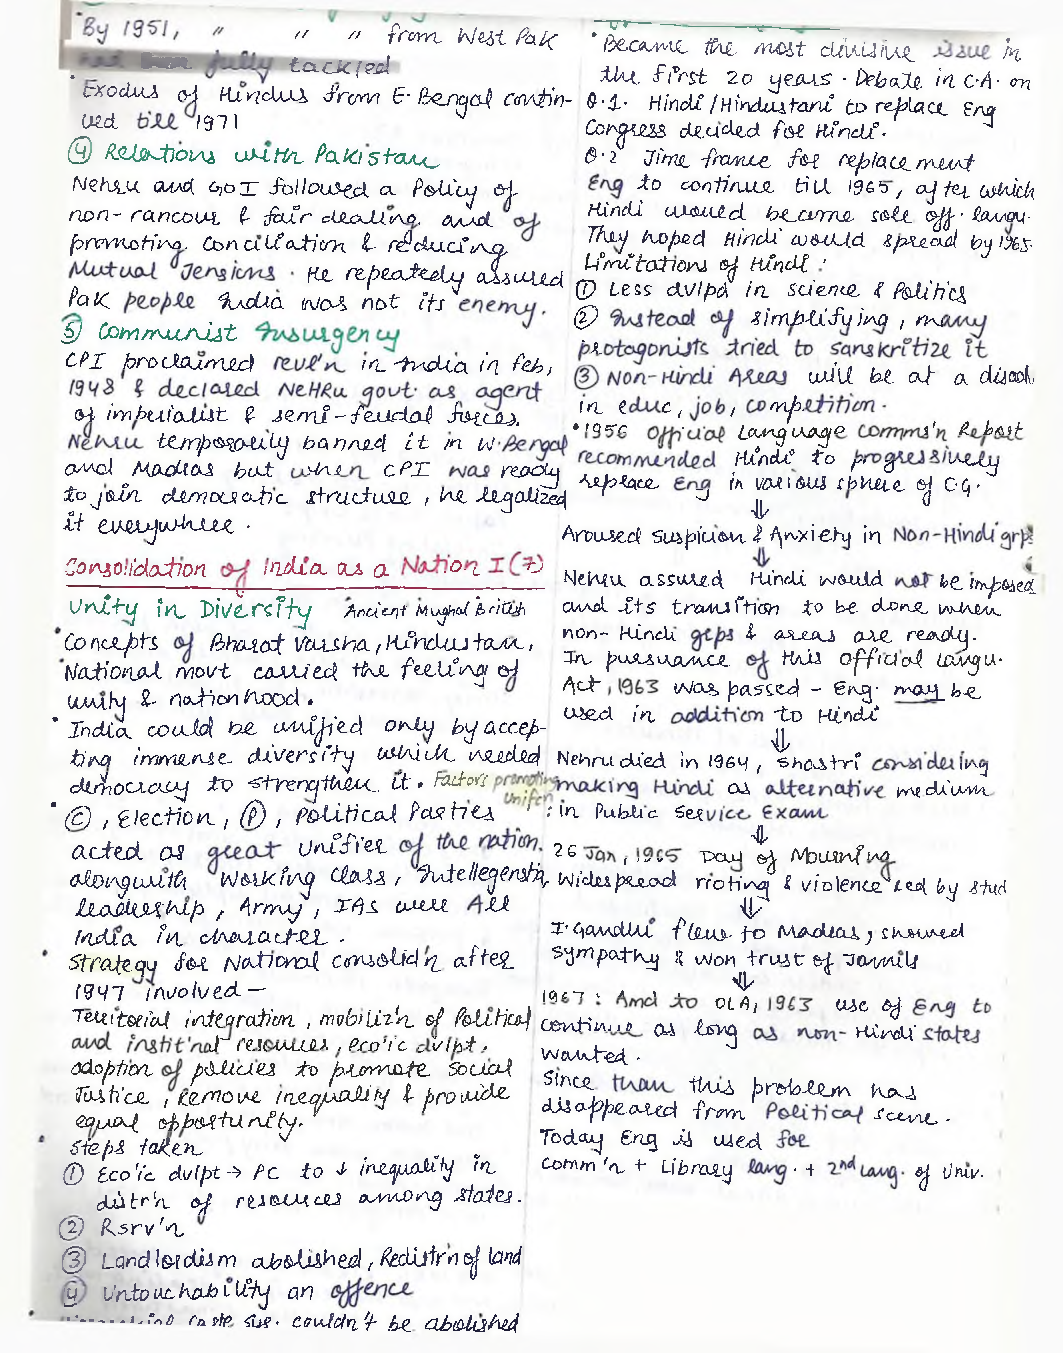 By 1951, " " " from West Pak
fully tackled
Exodus of Hindus from E. Bengal contin-
ued till 1971
④ Relations with Pakistan
Nehru and GOI followed a Policy of
non-rancour & fair dealing and of
promoting Conciliation & reducing
Mutual Tensions. He repeatedly assured
Pak people India was not its enemy.
⑤ Communist Insurgency
CPI proclaimed revl'n in India in feb,
1948 & declared NeHRu govt. as agent
of imperialist & semi-feudal forces.
Nehru temporarily banned it in W.Bengal
and Madras but when CPI was ready
to join democratic structure, he legalized
it everywhere.
Consolidation of India as a Nation I (7)
Unity in Diversity Ancient Mughal British
• Concepts of Bharat Varsha, Hindustan,
• National movt carried the feeling of
unity & nationhood.
• India could be unified only by accep-
ting immense diversity which needed
democracy to strengthen it. Factors promoting
Unifcn:
• Ⓒ, Election, Ⓟ, Political Parties
acted as great Unifier of the nation.
alongwith Working Class, Intellegenstia,
leadership, Army, IAS were All
India in character.
• Strategy for National consolid'n after
1947 involved —
Territorial integration, mobiliz'n of Political
and instit'nal resources, eco'ic dvlpt,
adoption of policies to promote Social
Justice, Remove inequality & provide
equal opportunity.
• Steps taken
① Eco'ic dvlpt → PC to ↓ inequality in
distr'n of resources among states.
② Rsrv'n
③ Landlordism abolished, Redistr'n of land
④ Untouchability an offence
• caste sys. couldn't be abolished
• Became the most divisive issue in
the first 20 years. Debate in C.A. on
Q.1. Hindi/Hindustani to replace Eng
Congress decided for Hindi.
Q.2 Time frame for replacement
Eng to continue till 1965, after which
Hindi would become sole off. langu.
They hoped Hindi would spread by 1965.
Limitations of Hindi:
① Less dvlpd in science & Politics
② Instead of simplifying, many
protagonists tried to sanskritize it
③ Non-Hindi Areas will be at a disad.
in educ, job, competition.
• 1956 Official Language Comms'n Report
recommended Hindi to progressively
replace Eng in various sphere of C.G.
⇓
Aroused Suspicion & Anxiety in Non-Hindi grps
⇓
Nehru assured Hindi would not be imposed
and its transition to be done when
non-Hindi grps & areas are ready.
In pursuance of this Official Langu.
Act, 1963 was passed – Eng. may be
used in addition to Hindi
⇓
Nehru died in 1964, Shastri considering
making Hindi as alternative medium
in Public Service Exam
⇓
26 Jan, 1965 Day of Mourning
Widespread rioting & violence led by stud
⇓
I. Gandhi flew to Madras, showed
sympathy & won trust of Tamils
⇓
1967: Amd to OLA, 1963 use of Eng to
continue as long as non-Hindi states
wanted.
Since than this problem has
disappeared from Political scene.
Today Eng is used for
Comm'n + Library lang. + 2nd lang. of Univ.